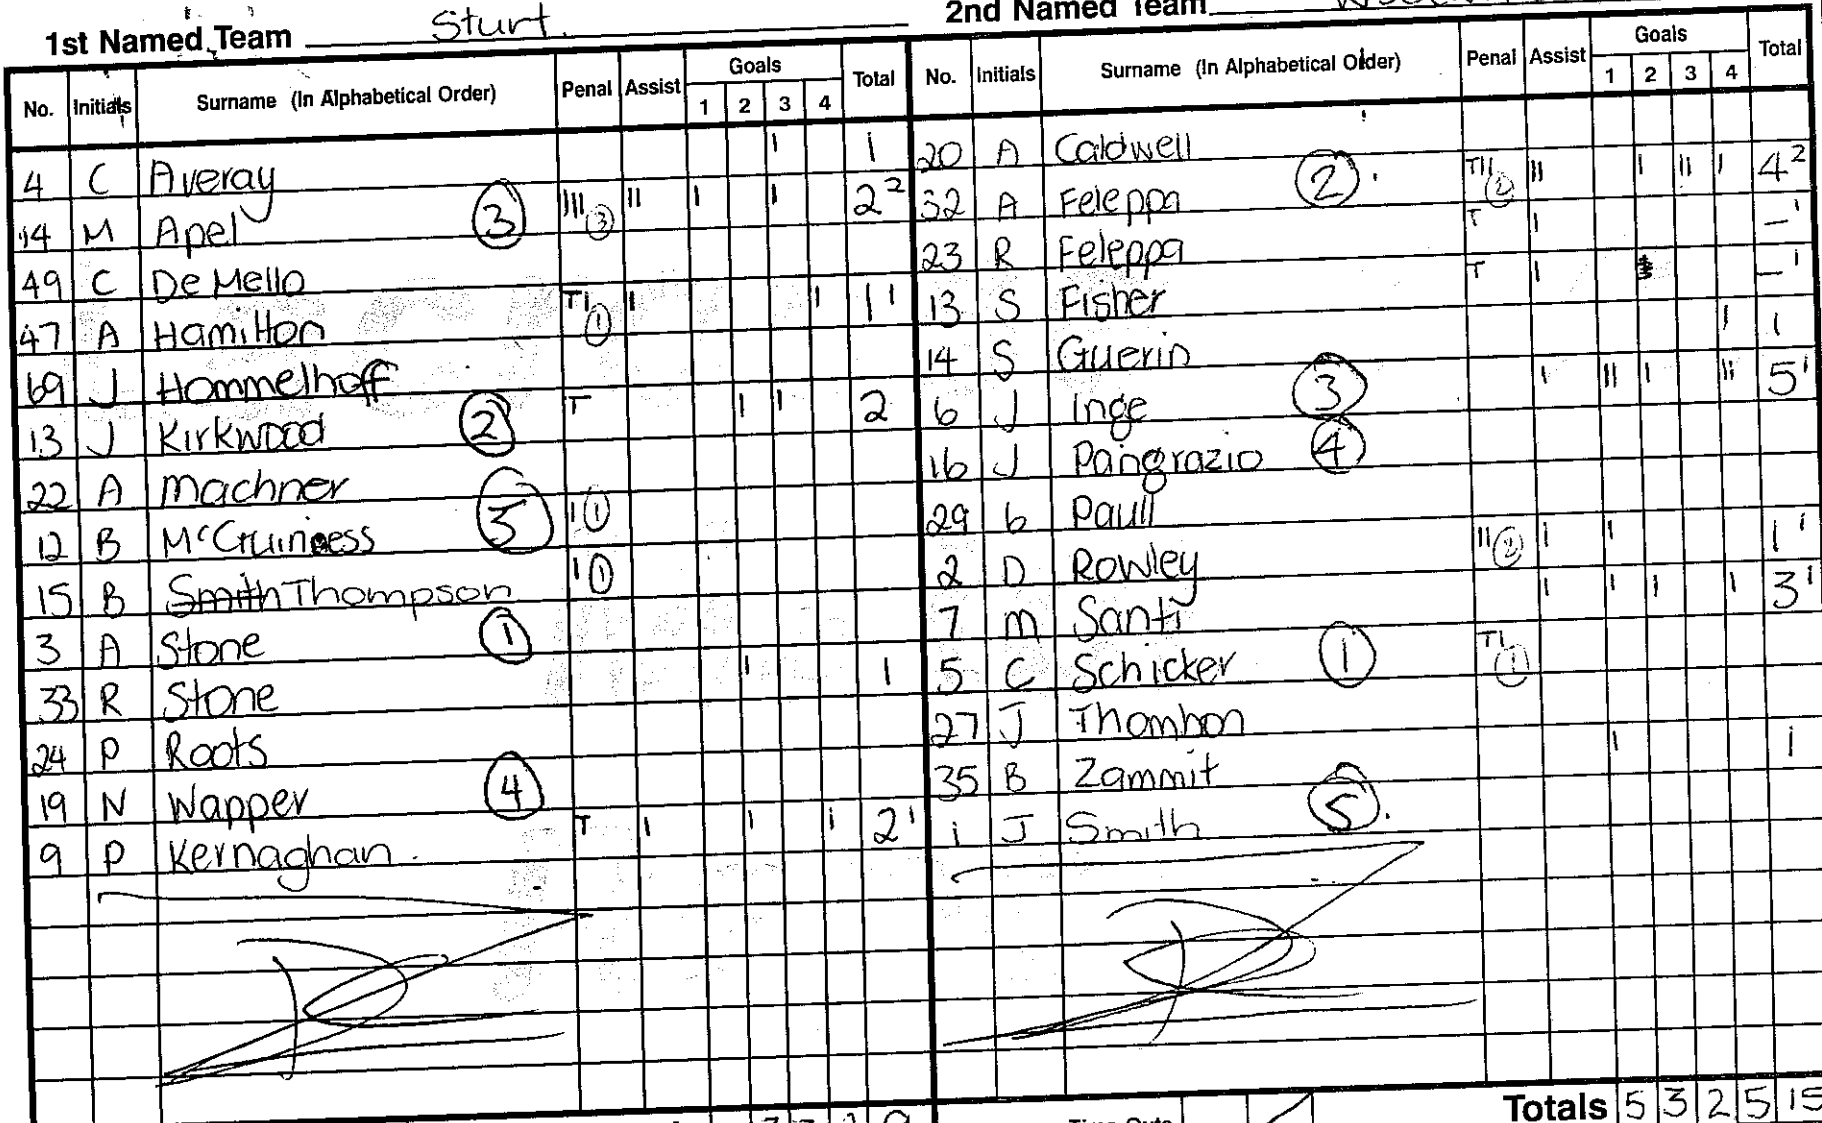 1st Named Team Sturt.
2nd Named Team
No. Initials Surname (In Alphabetical Order) Penal Assist Goals 1 2 3 4 Total
4 C Averay | 1
14 M Apel ③ ||| ③ || | | 2²
49 C De Mello
47 A Hamilton T| ① | | 1¹
69 J Hommelhoff
13 J Kirkwood ② T | | 2
22 A Machner
12 B McGuiness 5 | ①
15 B Smith Thompson | ①
3 A Stone ①
33 R Stone | 1
24 P Roots
19 N Wapper ④
9 P Kernaghan. T | | | 2¹
No. Initials Surname (In Alphabetical Order) Penal Assist Goals 1 2 3 4 Total
20 A Caldwell
32 A Feleppa ② T|| ② || | || | 4²
23 R Feleppa T | –¹
13 S Fisher T | –¹
14 S Guerin | 1
6 J Inge ③ | || | || 5¹
16 J Pangrazio ④
29 b Paull
2 D Rowley || ② | | 1¹
7 M Santi | | | | 3¹
5 C Schicker ① T| ①
27 J Thombon
35 B Zammit | 1
1 J Smith ⑤.
Totals 5 3 2 5 15